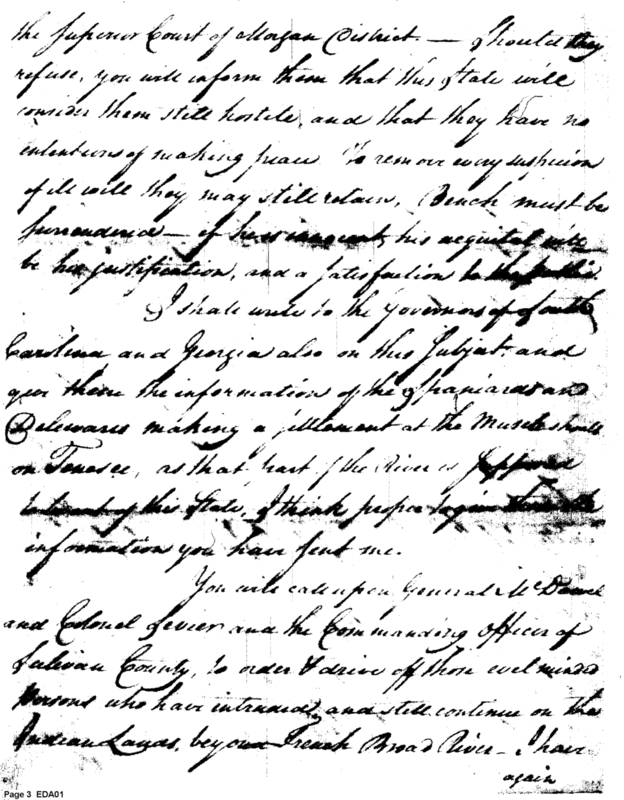 the Superior Court of Morgan District — Should they
refuse, you will inform them that this State will
consider them still hostile, and that they have no
intentions of making peace To remove every suspicion
of ill will they may still retain, Bench must be
surrendered — if he is innocent, his acquital will
be his justification, and a satisfaction to the public.
I shall write to the Governors of South
Carolina and Georgia also on this Subject and
give them the information of the Spaniards and
Delewares making a settlement at the Muscle shoals
on Tenesee, as that part of the River is supposed
to be out of this State, I think proper to give them the
information you have sent me.
You will call upon General McDowel
and Colonel Sevier and the Commanding Officer of
Sulivan County, to order & drive off those evel minded
Persons who have intruded, and still continue on the
Indian Lands, beyond French Broad River — I have
again
Page 3 EDA01